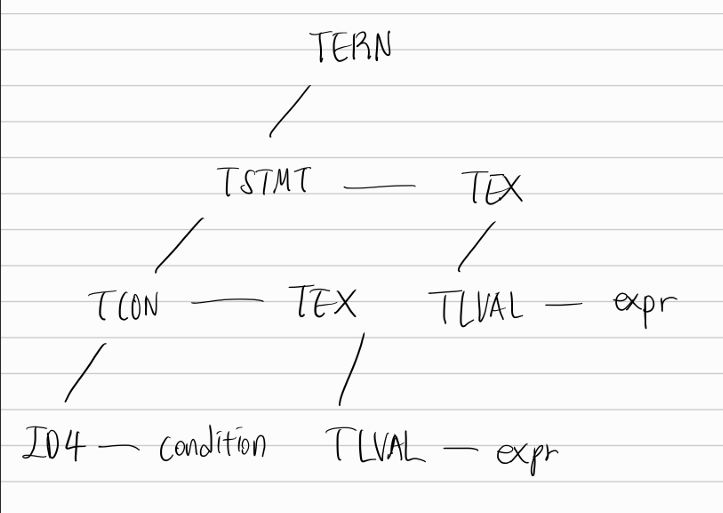 TERN
TSTMT TEX
TCON TEX TLVAL expr
ID4 condition TLVAL expr